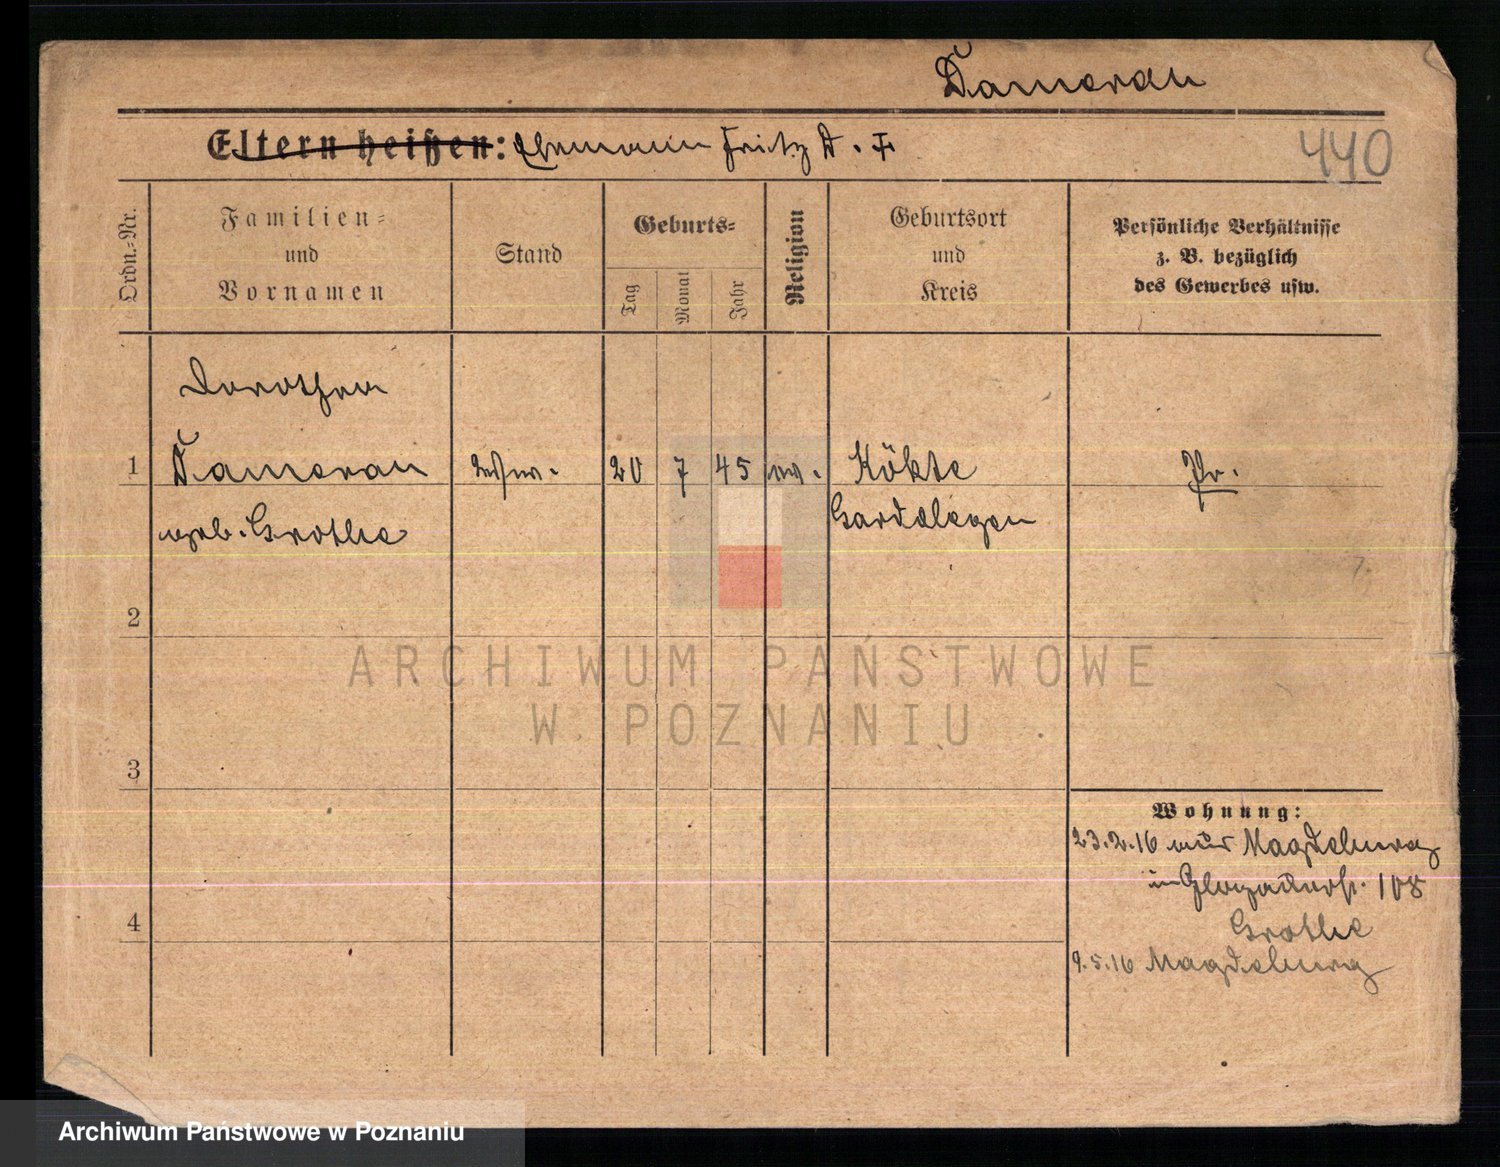 Damerau
Eltern heißen: Ehemann Fritz D. †
440
Ordn.-Nr.
Familien- und Vornamen
Stand
Geburts-
Tag
Monat
Jahr
Religion
Geburtsort und Kreis
Persönliche Verhältnisse
z. B. bezüglich
des Gewerbes usw.
Dorothea
1 Damerau 20 7 45 ev. Kökte Pr.
geb. Grothe Gardelegen
2
3
4
Wohnung:
23.2.16 aus Magdeburg
in 108
Grothe
9.5.16 Magdeburg
ARCHIWUM PAŃSTWOWE
W POZNANIU
Archiwum Państwowe w Poznaniu